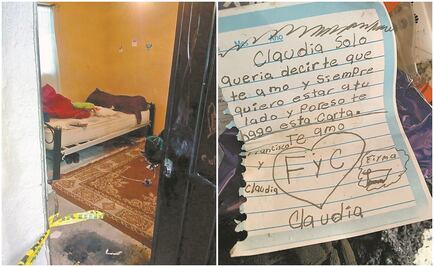 Ano
Claudia Solo
queria decirte que
te amo y Siempre
quiero estar a tu
lado y Poreso te
hago esta Carta.
Te amo
Francisco
y
Claudia
F y C
Firma
Claudia